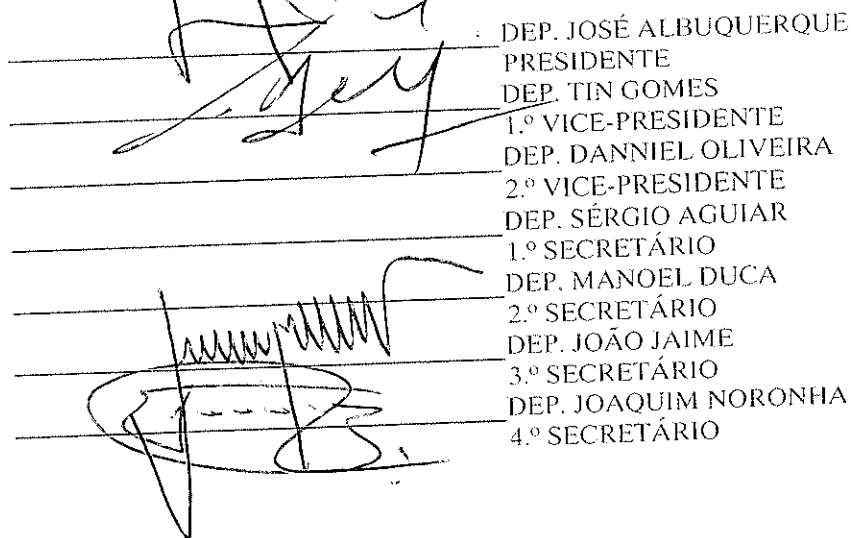 DEP. JOSÉ ALBUQUERQUE
PRESIDENTE
DEP. TIN GOMES
1.º VICE-PRESIDENTE
DEP. DANNIEL OLIVEIRA
2.º VICE-PRESIDENTE
DEP. SÉRGIO AGUIAR
1.º SECRETÁRIO
DEP. MANOEL DUCA
2.º SECRETÁRIO
DEP. JOÃO JAIME
3.º SECRETÁRIO
DEP. JOAQUIM NORONHA
4.º SECRETÁRIO